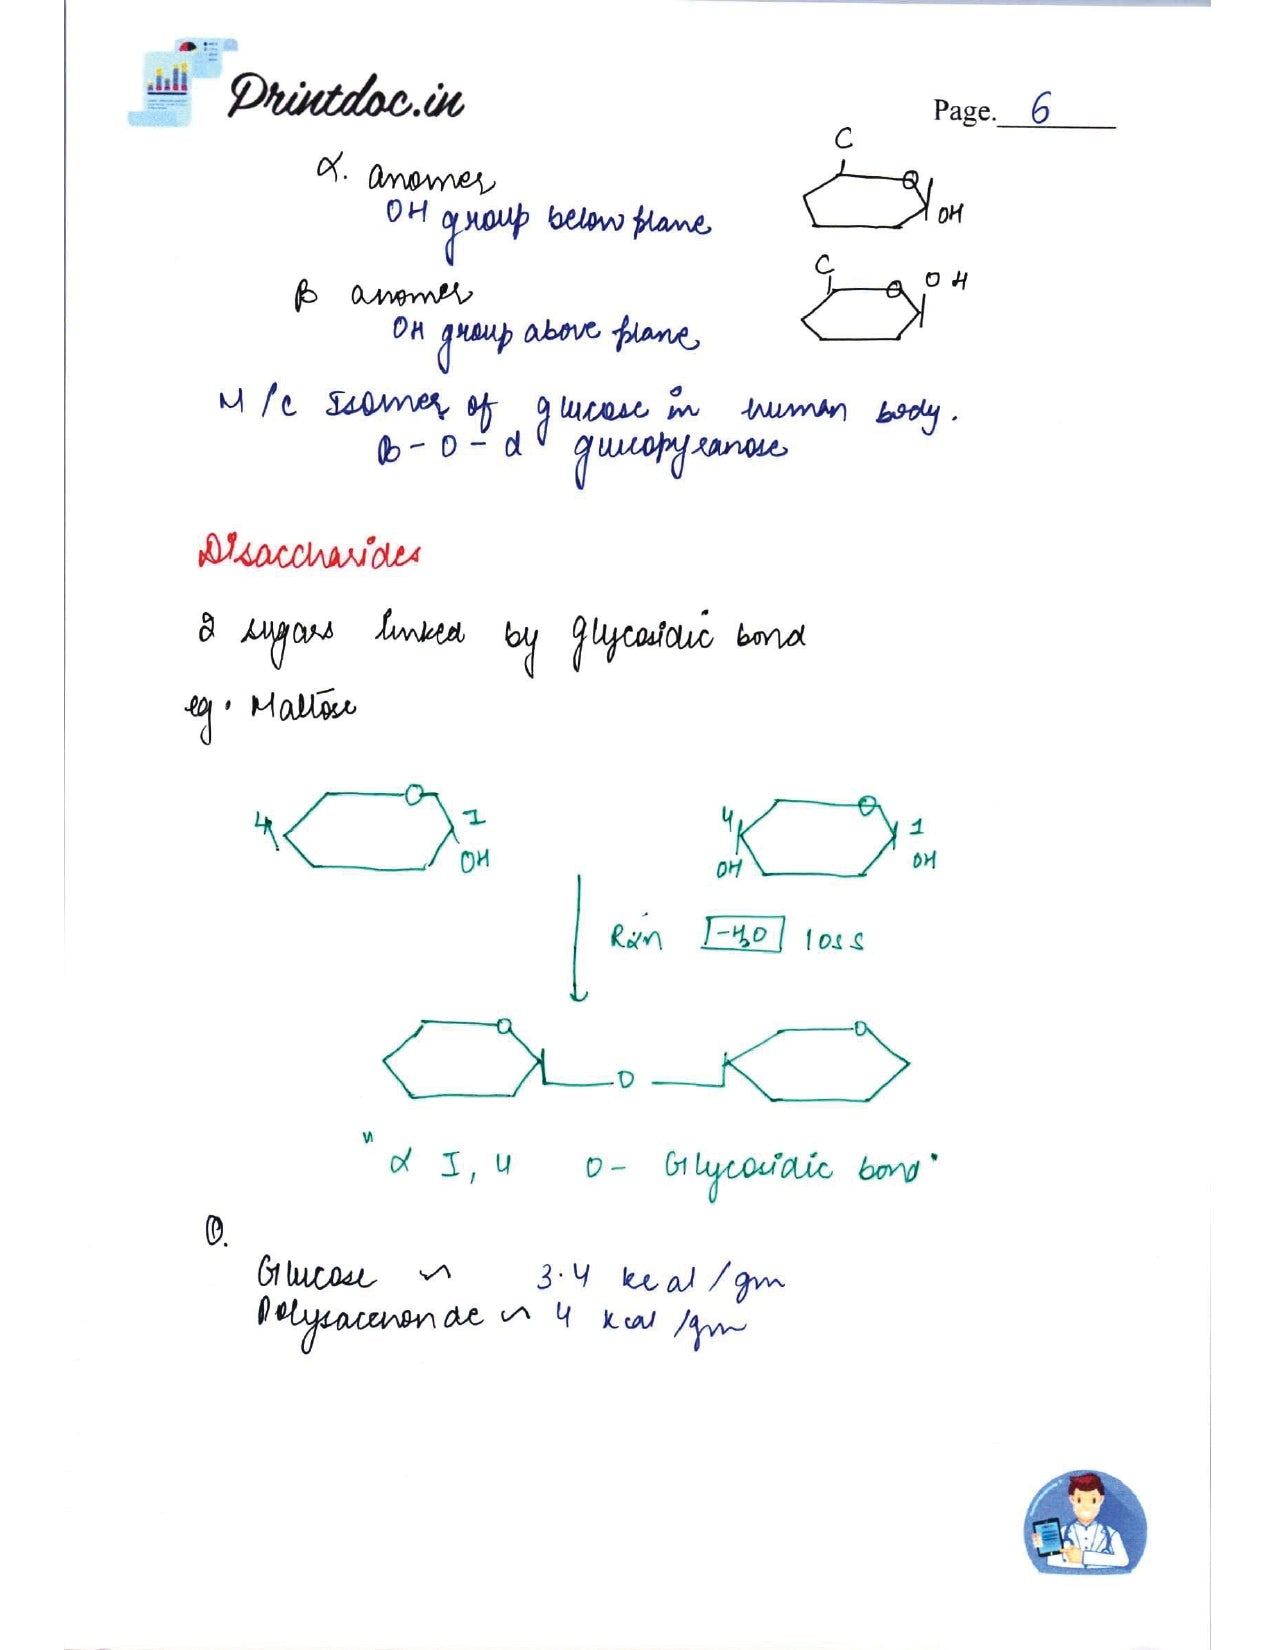 Printdoc.in
Page. 6
α. anomer
OH group below plane
C
OH
β anomer
OH group above plane
C
OH
M/c Isomer of glucose in human body.
β - D - d glucopyranose
Disaccharides
2 sugars linked by glycosidic bond
eg. Maltose
4 O 1 OH
4 OH O 1 OH
Rxn -H2O loss
O O
O
"α 1, 4 O- Glycosidic bond"
Q.
Glucose ~ 3.4 kcal/gm
~ 4 kcal/gm